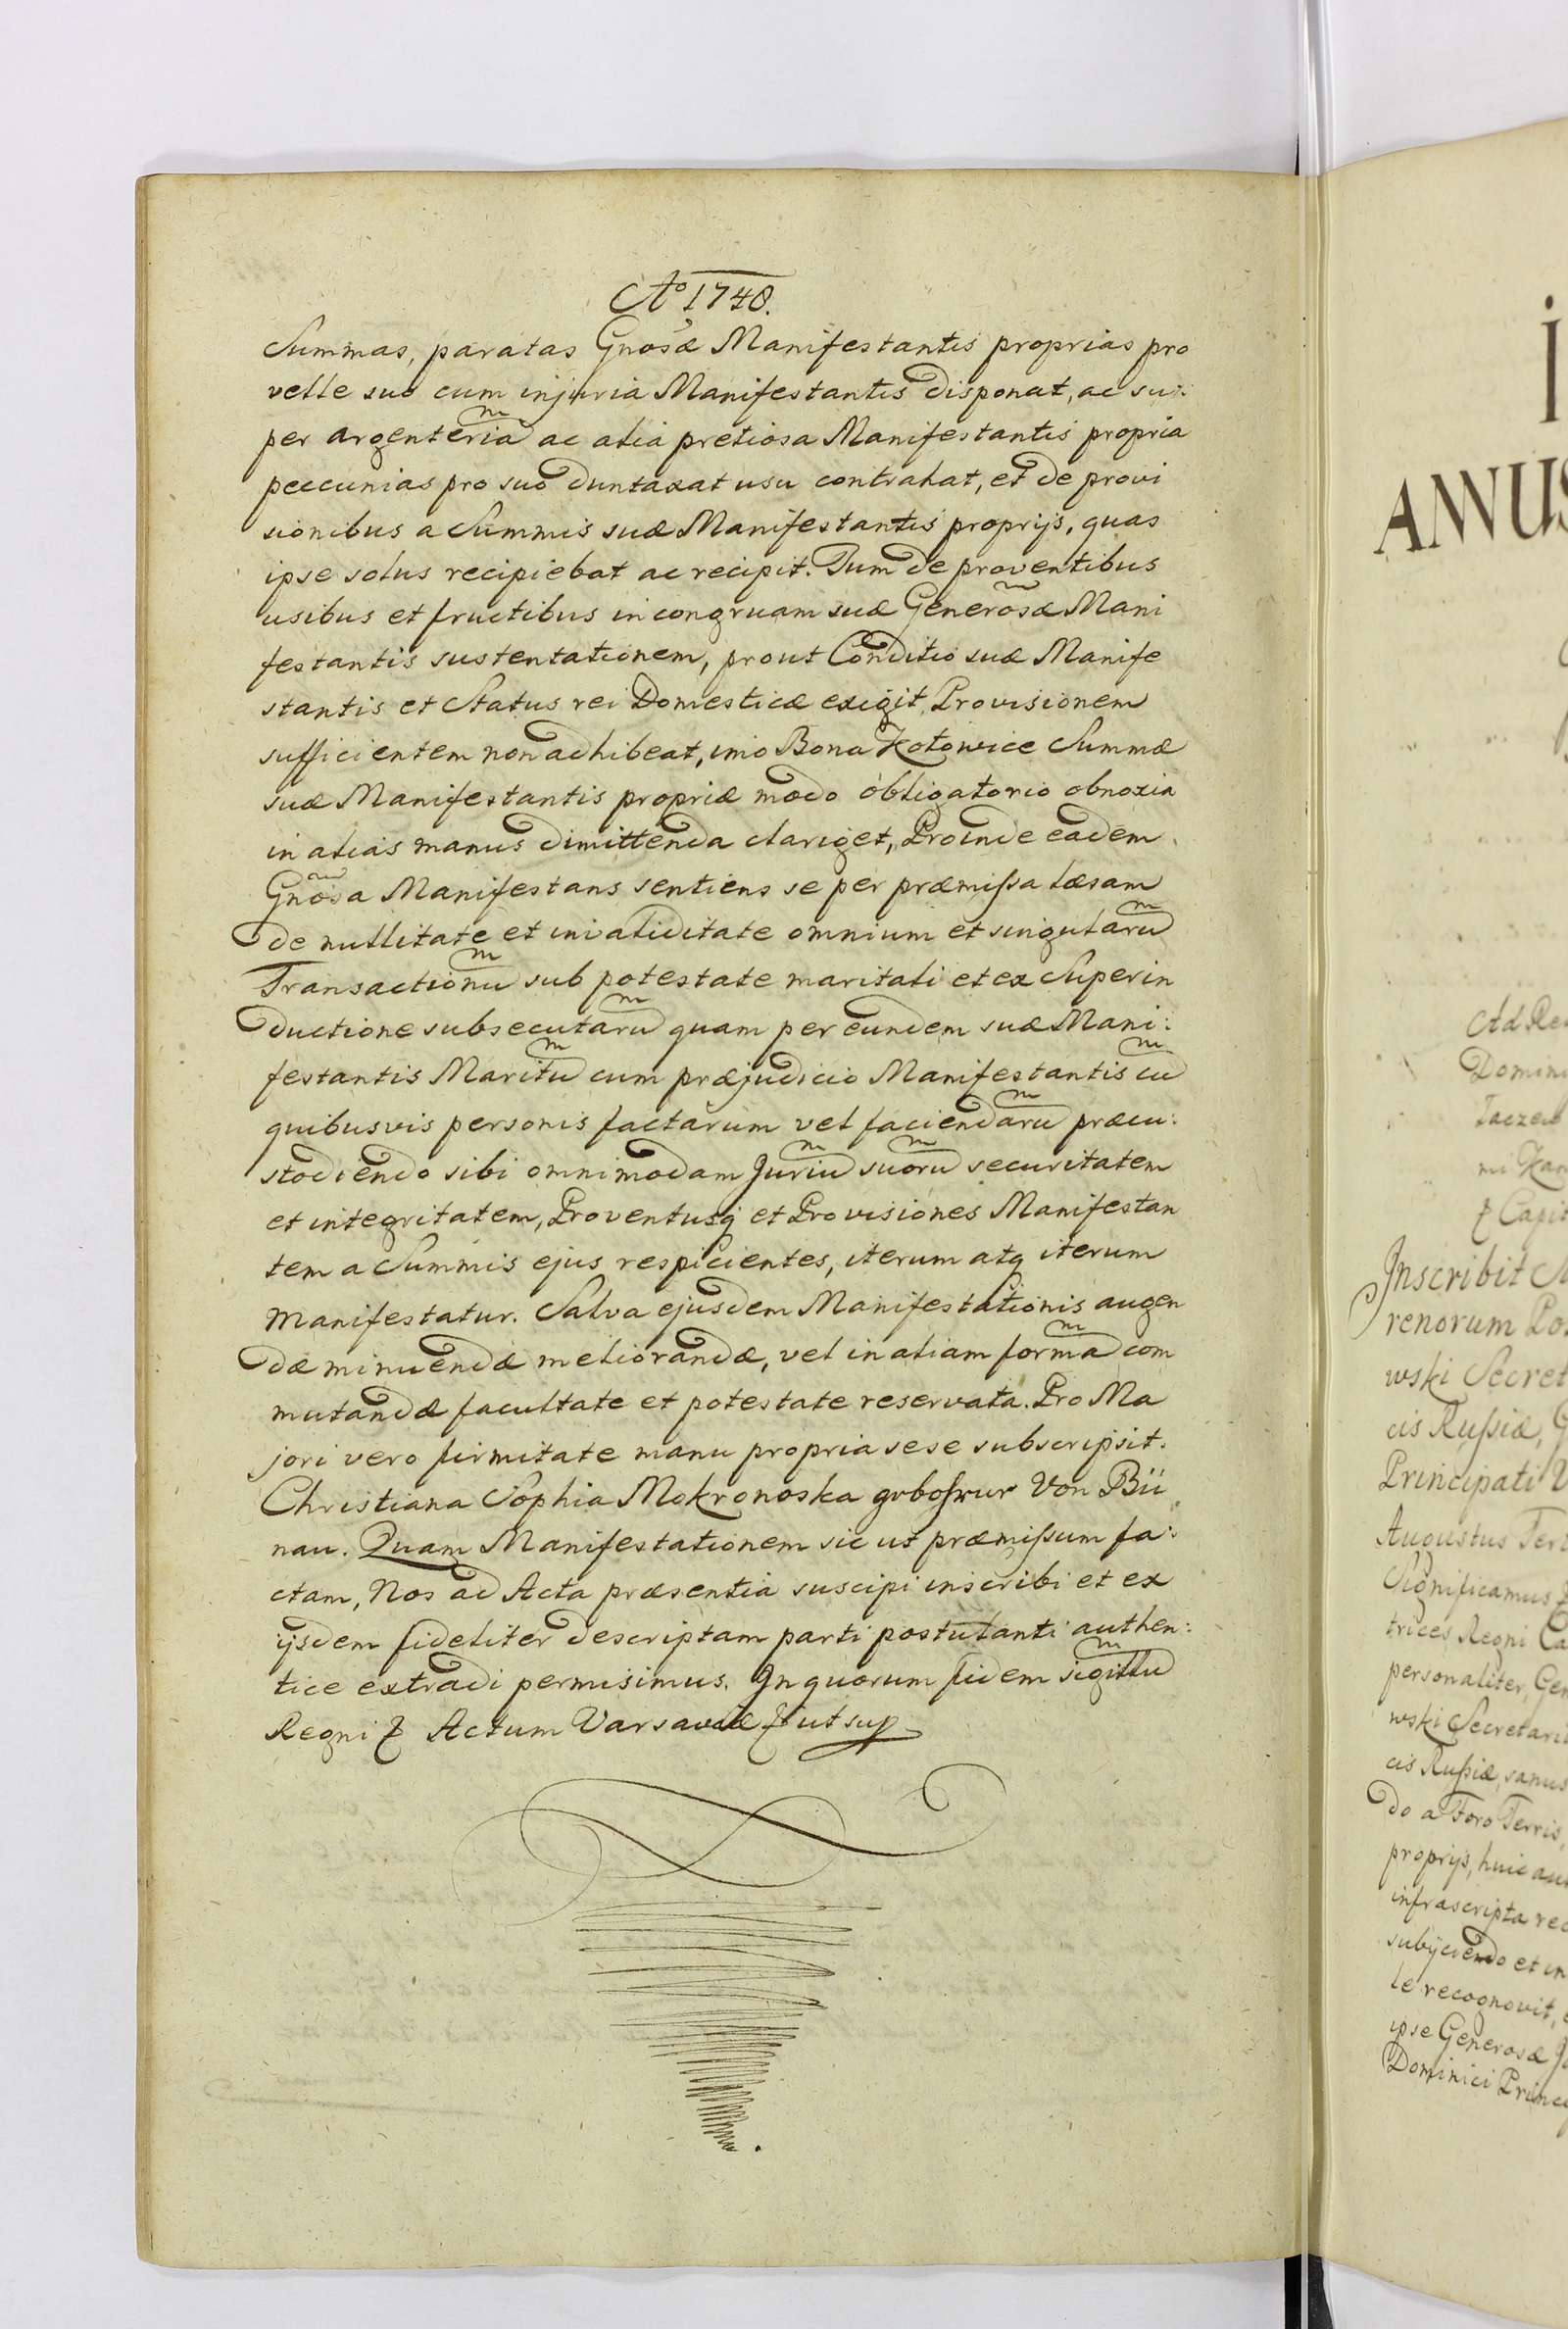 Aº 1740.
Summas, paratas Gnosæ Manifestantis proprias pro
velle suo cum injuria Manifestantis disponat, ac su:
per argenteria ac alia pretiosa Manifestantis propria
peccunias pro suo duntaxat usu contrahat, et de provi
sionibus a Summis suæ Manifestantis proprijs, quas
ipse solus recipiebat ac recipit. Tum de proventibus
usibus et fructibus in congruam suæ Generosæ Mani
festantis sustentationem, prout Conditio suæ Manife
stantis et Status rei Domesticæ exigit, Provisionem
sufficientem non adhibeat, imo Bona Kotowice Summæ
suæ Manifestantis propriæ modo obligatorio obnoxia
in alias manus dimittenda clariget, Proinde eadem
Gnosa Manifestans sentiens se per præmissa læsam
de nullitate et invaliditate omnium et singularu͞
Transactionu͞ sub potestate maritali et ex Superin
ductione subsecutaru͞ quam per eundem suæ Mani:
festantis Maritu͞ cum præjudicio Manifestantis cu͞
quibusvis personis factarum vel faciendaru͞ præcu:
stodiendo sibi omnimodam Juriu͞ suoru͞ securitatem
et integritatem, Proventusq et Provisiones Manifestan
tem a Summis ejus respicientes, iterum atq iterum
manifestatur. Salva ejusdem Manifestationis augen
dæ minuendæ meliorandæ, vel in aliam forma͞ com
mutandæ facultate et potestate reservata. Pro Ma
jori vero firmitate manu propria sese subscripsit.
Christiana Sophia Mokronoska gebohrne Von Bü
nau. Quam Manifestationem sic ut præmissum fa:
ctam, Nos ad Acta præsentia suscipi inscribi et ex
ijsdem fideliter descriptam parti postulanti authen:
tice extradi permisimus. In quorum fidem sigillu͞
Regni & Actum Varsaviæ & ut sup
I
ANNUS
Ad Re
Domini
Taczen
mi Kan
& Capit
Inscribit
renorum Po
wski Secret
cis Russiæ,
Principati
Augustus Ter
Significamus
trices Regni Ca
personaliter, Gen
wski Secretari
cis Russiæ, sanus
do a Foro Terris
proprijs, huic au
infrascripta rec
subijciendo et in
le recognovit,
ipse Generosæ
Dominici Princ